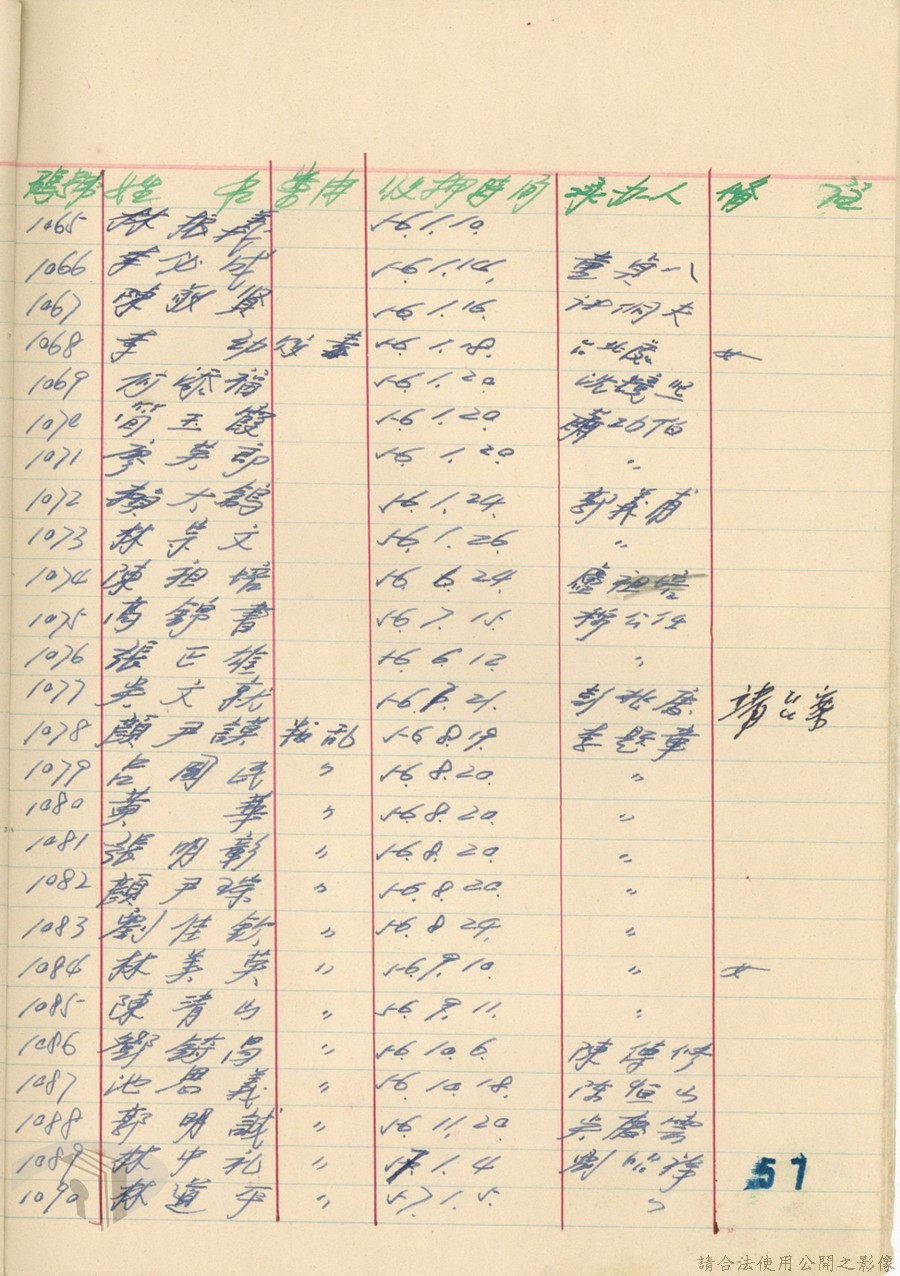 號 姓 名 案由 收押時間 承办人 備 註
1065 林振義 56.1.10.
1066 李必成 56.1.14. 童貞一
1067 陳 賢 56.1.16. 夫
1068 李 幼 56.1.18. 台北處 女
1069 何 福 56.1.20
1070 簡玉霞 56.1.20.
1071 廖英郎 56.1.20. 〃
1072 賴大鶴 56.1.24. 郭義甫
1073 林崇文 56.1.26. 〃
1074 陳祖培 56.6.24.
1075 高錦書 56.7.15. 公任
1076 張正雄 56.6.12 〃
1077 吳文就 56. .21. 彭 請
1078 顏尹謨 叛乱 56.8.19. 李 章
1079 呂國民 〃 56.8.20. 〃
1080 黃 華 〃 56.8.20. 〃
1081 張明彰 〃 56.8.20. 〃
1082 顏尹琮 〃 56.8.20. 〃
1083 劉佳欽 〃 56.8.24. 〃
1084 林美英 〃 56.9.10. 〃 女
1085 陳清山 〃 56.9.11. 〃
1086 鄧 昌 〃 56.10.6. 陳 修
1087 池 義 〃 56.10.18. 陳恒山
1088 郭明誠 〃 56.11.20 吳慶雲
1089 林中礼 〃 57.1.4 劉
1090 林道平 〃 57.1.5. 〃
57
請合法使用公開之影像